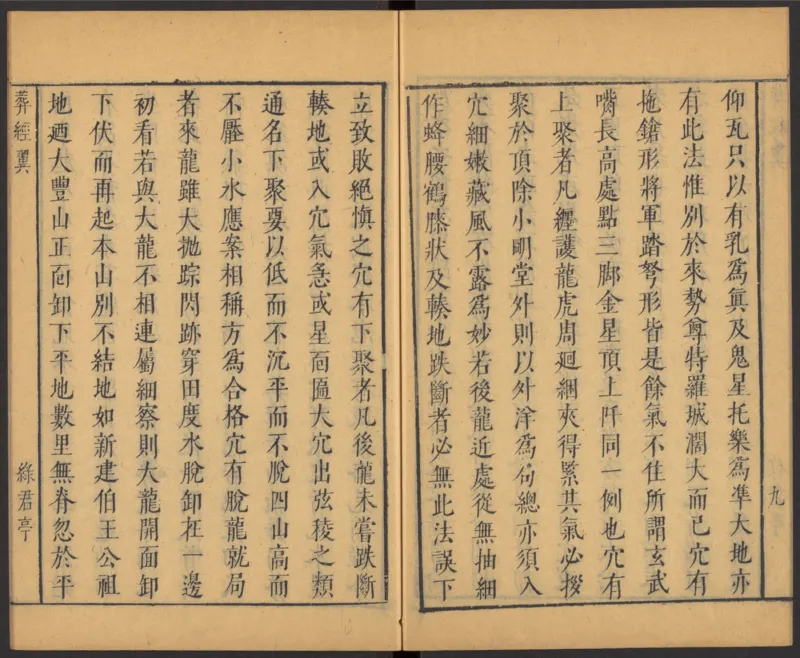 九
仰瓦只以有乳為真及鬼星托樂為準大地亦
有此法惟別於來勢尊特羅城濶大而已穴有
拖鎗形將軍踏弩形皆是餘氣不住所謂玄武
嘴長高處點三脚金星頂上阡同一例也穴有
上聚者凡纏護龍虎周廻綑夾得緊其氣必撥
聚於頂除小明堂外則以外洋為句總亦須入
穴細嫩藏風不露為妙若後龍近處從無抽細
作蜂腰鶴膝狀及輳地跌斷者必無此法誤下
立致敗絕慎之穴有下聚者凡後龍未嘗跌斷
輳地或入穴氣急或星面匾大穴出弦稜之類
通名下聚要以低而不沉平而不脫四山高而
不壓小水應案相稱方為合格穴有脫龍就局
者來龍雖大拋踪閃跡穿田度水脫卸在一邊
初看若與大龍不相連屬細察則大龍開面卸
下伏而再起本山別不結地如新建伯王公祖
地廼大豐山正面卸下平地數里無脊忽於平
葬經翼
綠君亭